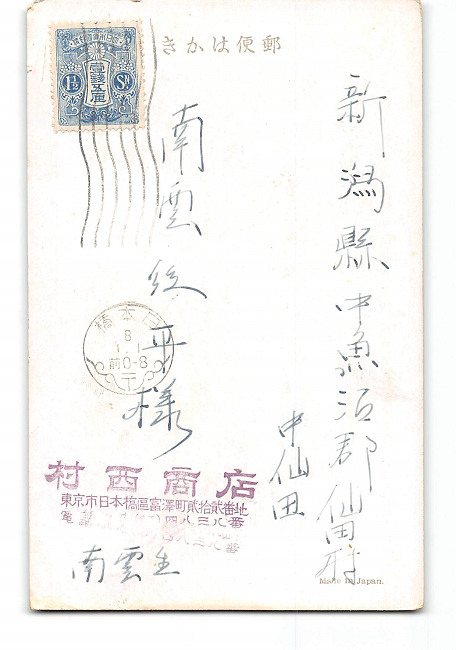 郵便はかき
壹錢五厘
1½ Sn
新潟縣中魚沼郡仙田村
中仙田
南雲 平様
日本橋
8.1.1
前0-8
村西商店
東京市日本橋區富澤町貳拾貳番地
電話 四八三八番
南雲生
Made in Japan.